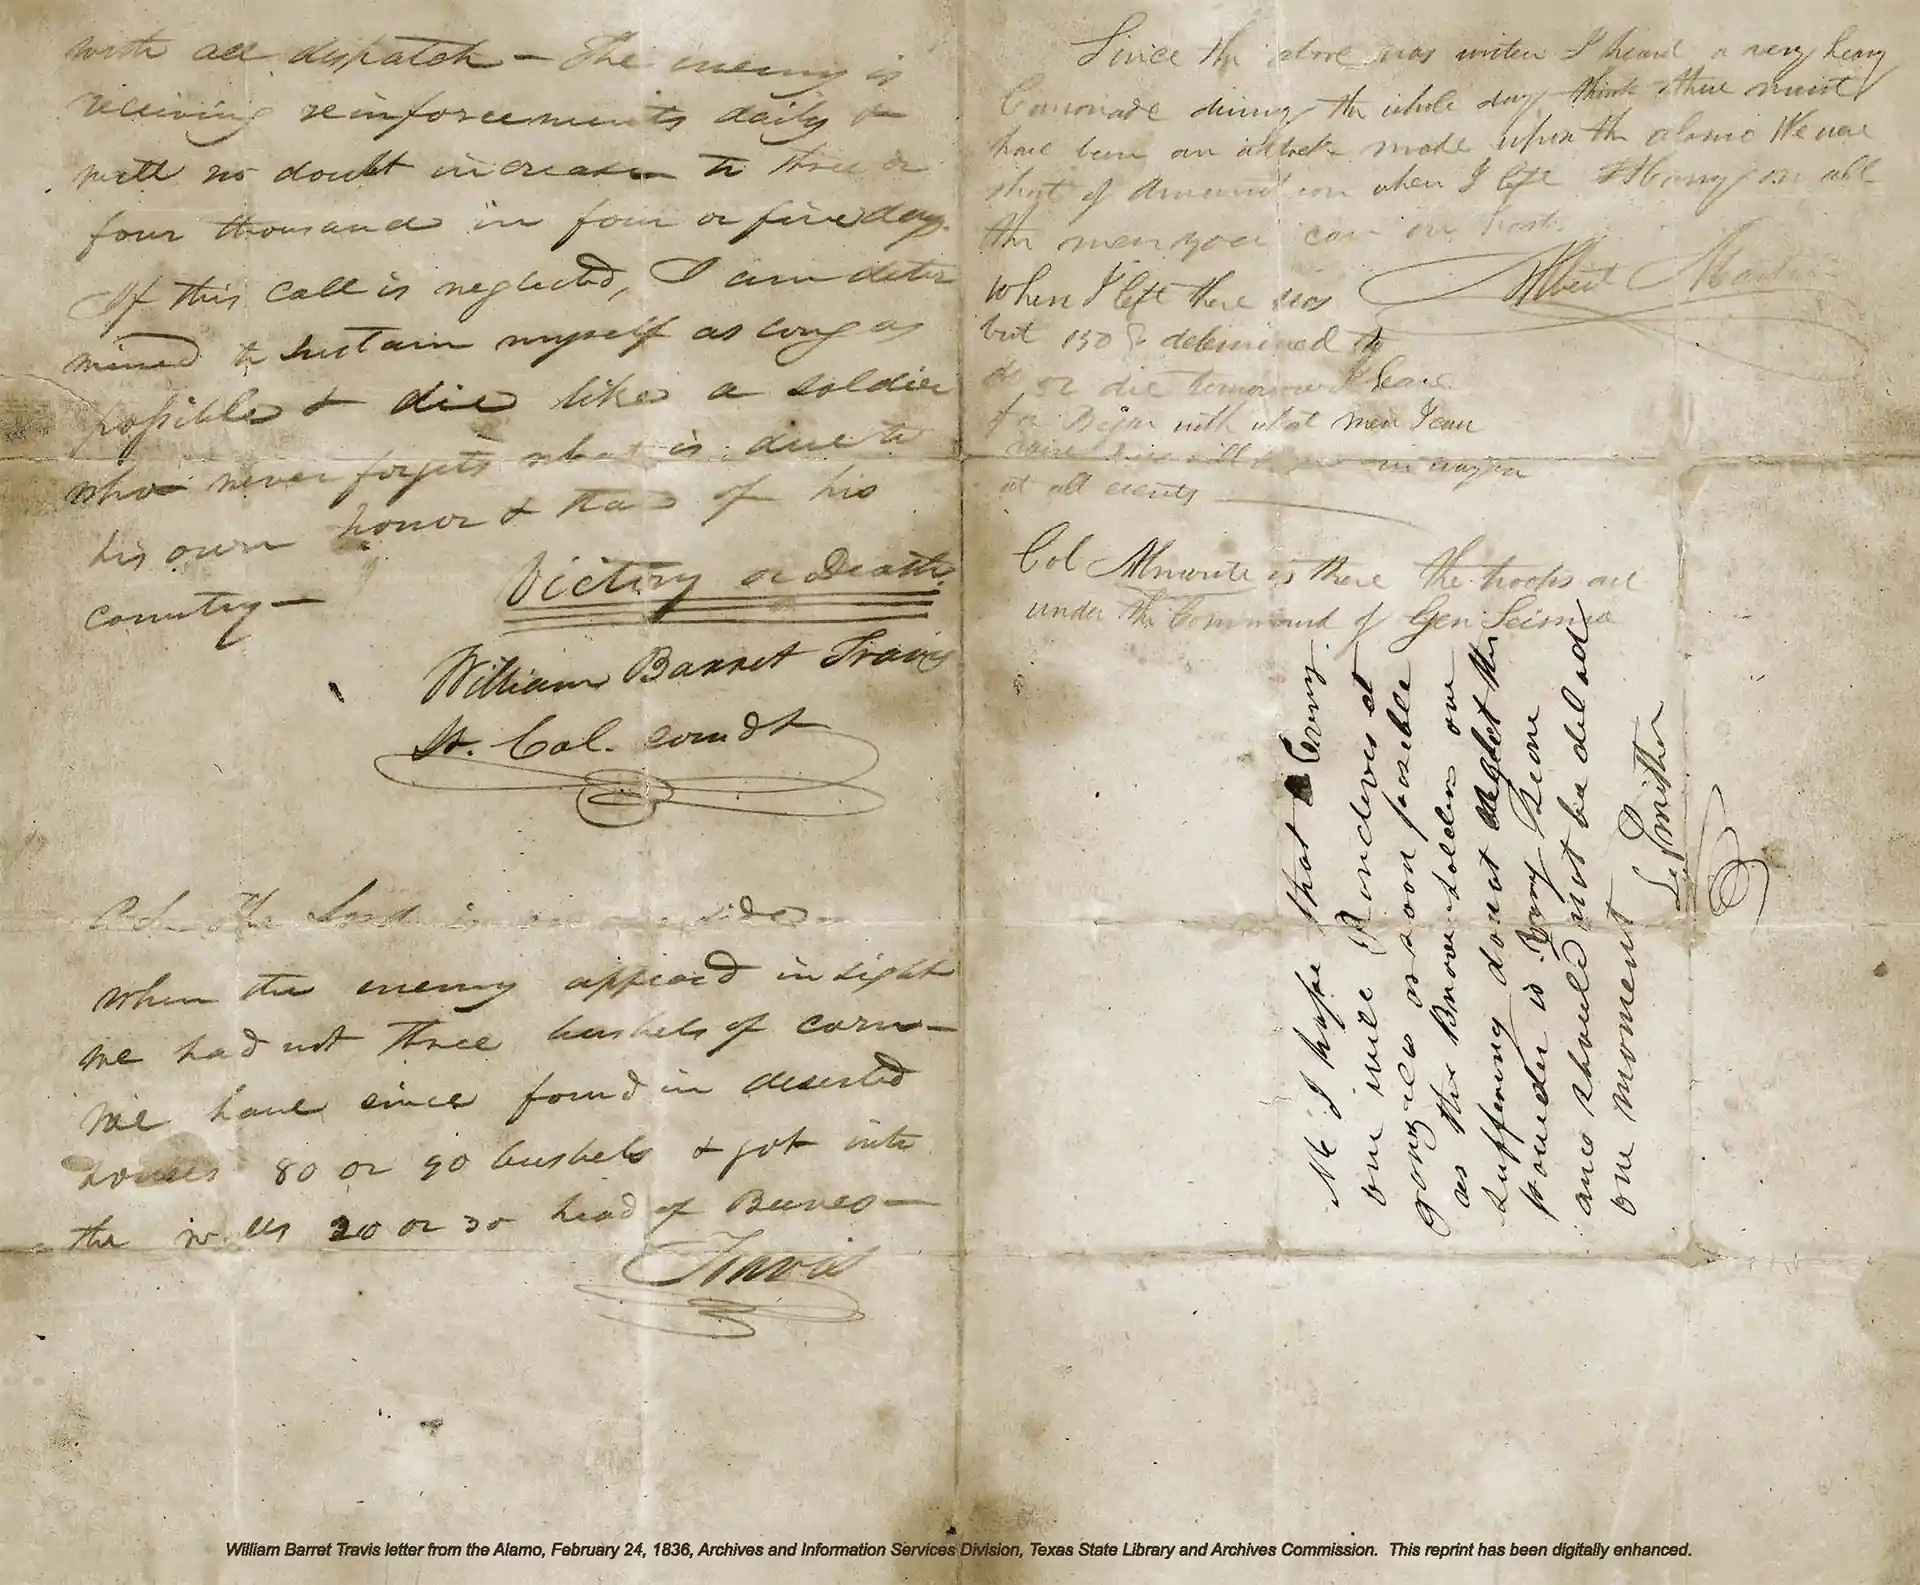 with all dispatch — The enemy is
receiving reinforcements daily &
will no doubt increase to three or
four thousand in four or five days.
If this call is neglected, I am deter
mined to sustain myself as long as
possible & die like a soldier
who never forgets what is due to
his own honor & that of his
country —
Victory or Death
William Barret Travis
Lt. Col. comdt
P.S. The Lord is on our side—
When the enemy appeared in sight
we had not three bushels of corn—
We have since found in deserted
houses 80 or 90 bushels & got into
the walls 20 or 30 head of Beeves—
Travis
Since the above was written I heard a very heavy
Canonade during the whole day think there must
have been an attack made upon the alamo We were
short of Amunition when I left Hurry on all
the men you can in hast
Albert Martin
When I left there was
but 150 determined to
do or die tomorrow I leave
for Bejar with what men I can
raise will at
at all events
Col Almonte is there the troops are
under the Command of Gen Seisma
Nb I hope that Every
one will Randeves at
gonzales as soon poseble
as the Brave soldiers are
suffering do not neglect the
powder is very scarce
and should not be delad
one moment
L. Smither
William Barret Travis letter from the Alamo, February 24, 1836, Archives and Information Services Division, Texas State Library and Archives Commission. This reprint has been digitally enhanced.